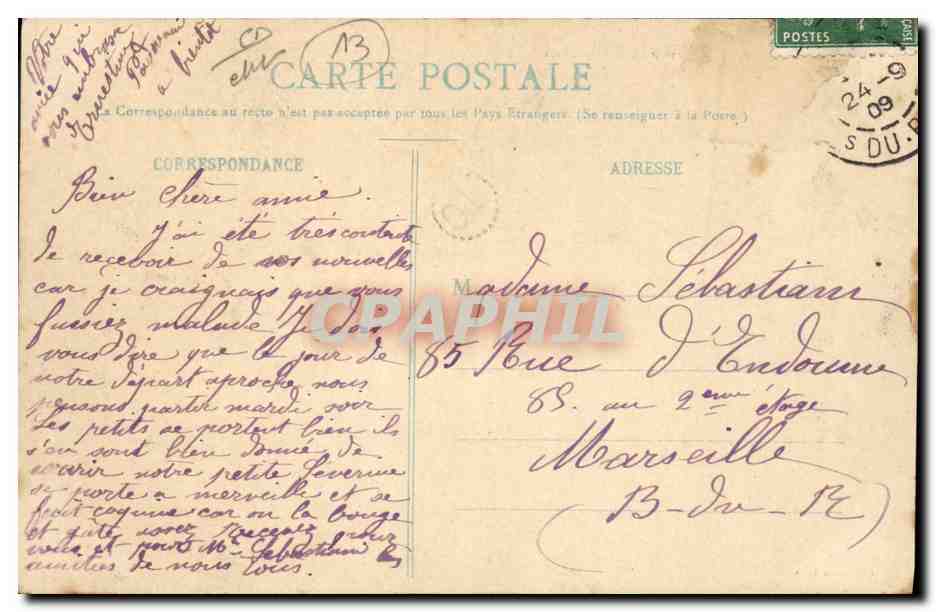 Votre
amie qui
vous embrasse
Ernestine
a bientôt
13
CARTE POSTALE
La Correspondance au recto n'est pas acceptée par tous les Pays Etrangers. (Se renseigner à la Poste.)
POSTES
24 - 9
09
S DU
CORRESPONDANCE
Bien chère amie.
J'ai été très contente
de recevoir de vos nouvelles
car je craignais que vous
fussiez malade Je dois
vous dire que le jour de
notre départ aproche nous
pensons partir mardi soir
Les petits se portent bien ils
s'en sont bien donné de
courir notre petite Severine
se porte a merveille et se
fait car on la bouge
et gâte assez Recevez pour
vous et pour Mr Sébastiani les
amitiés de nous tous.
ADRESSE
Madame Sébastiani
85 Rue d'Endoume
85. au 2eme étage
Marseille
(B-du-R)
CPAPHIL